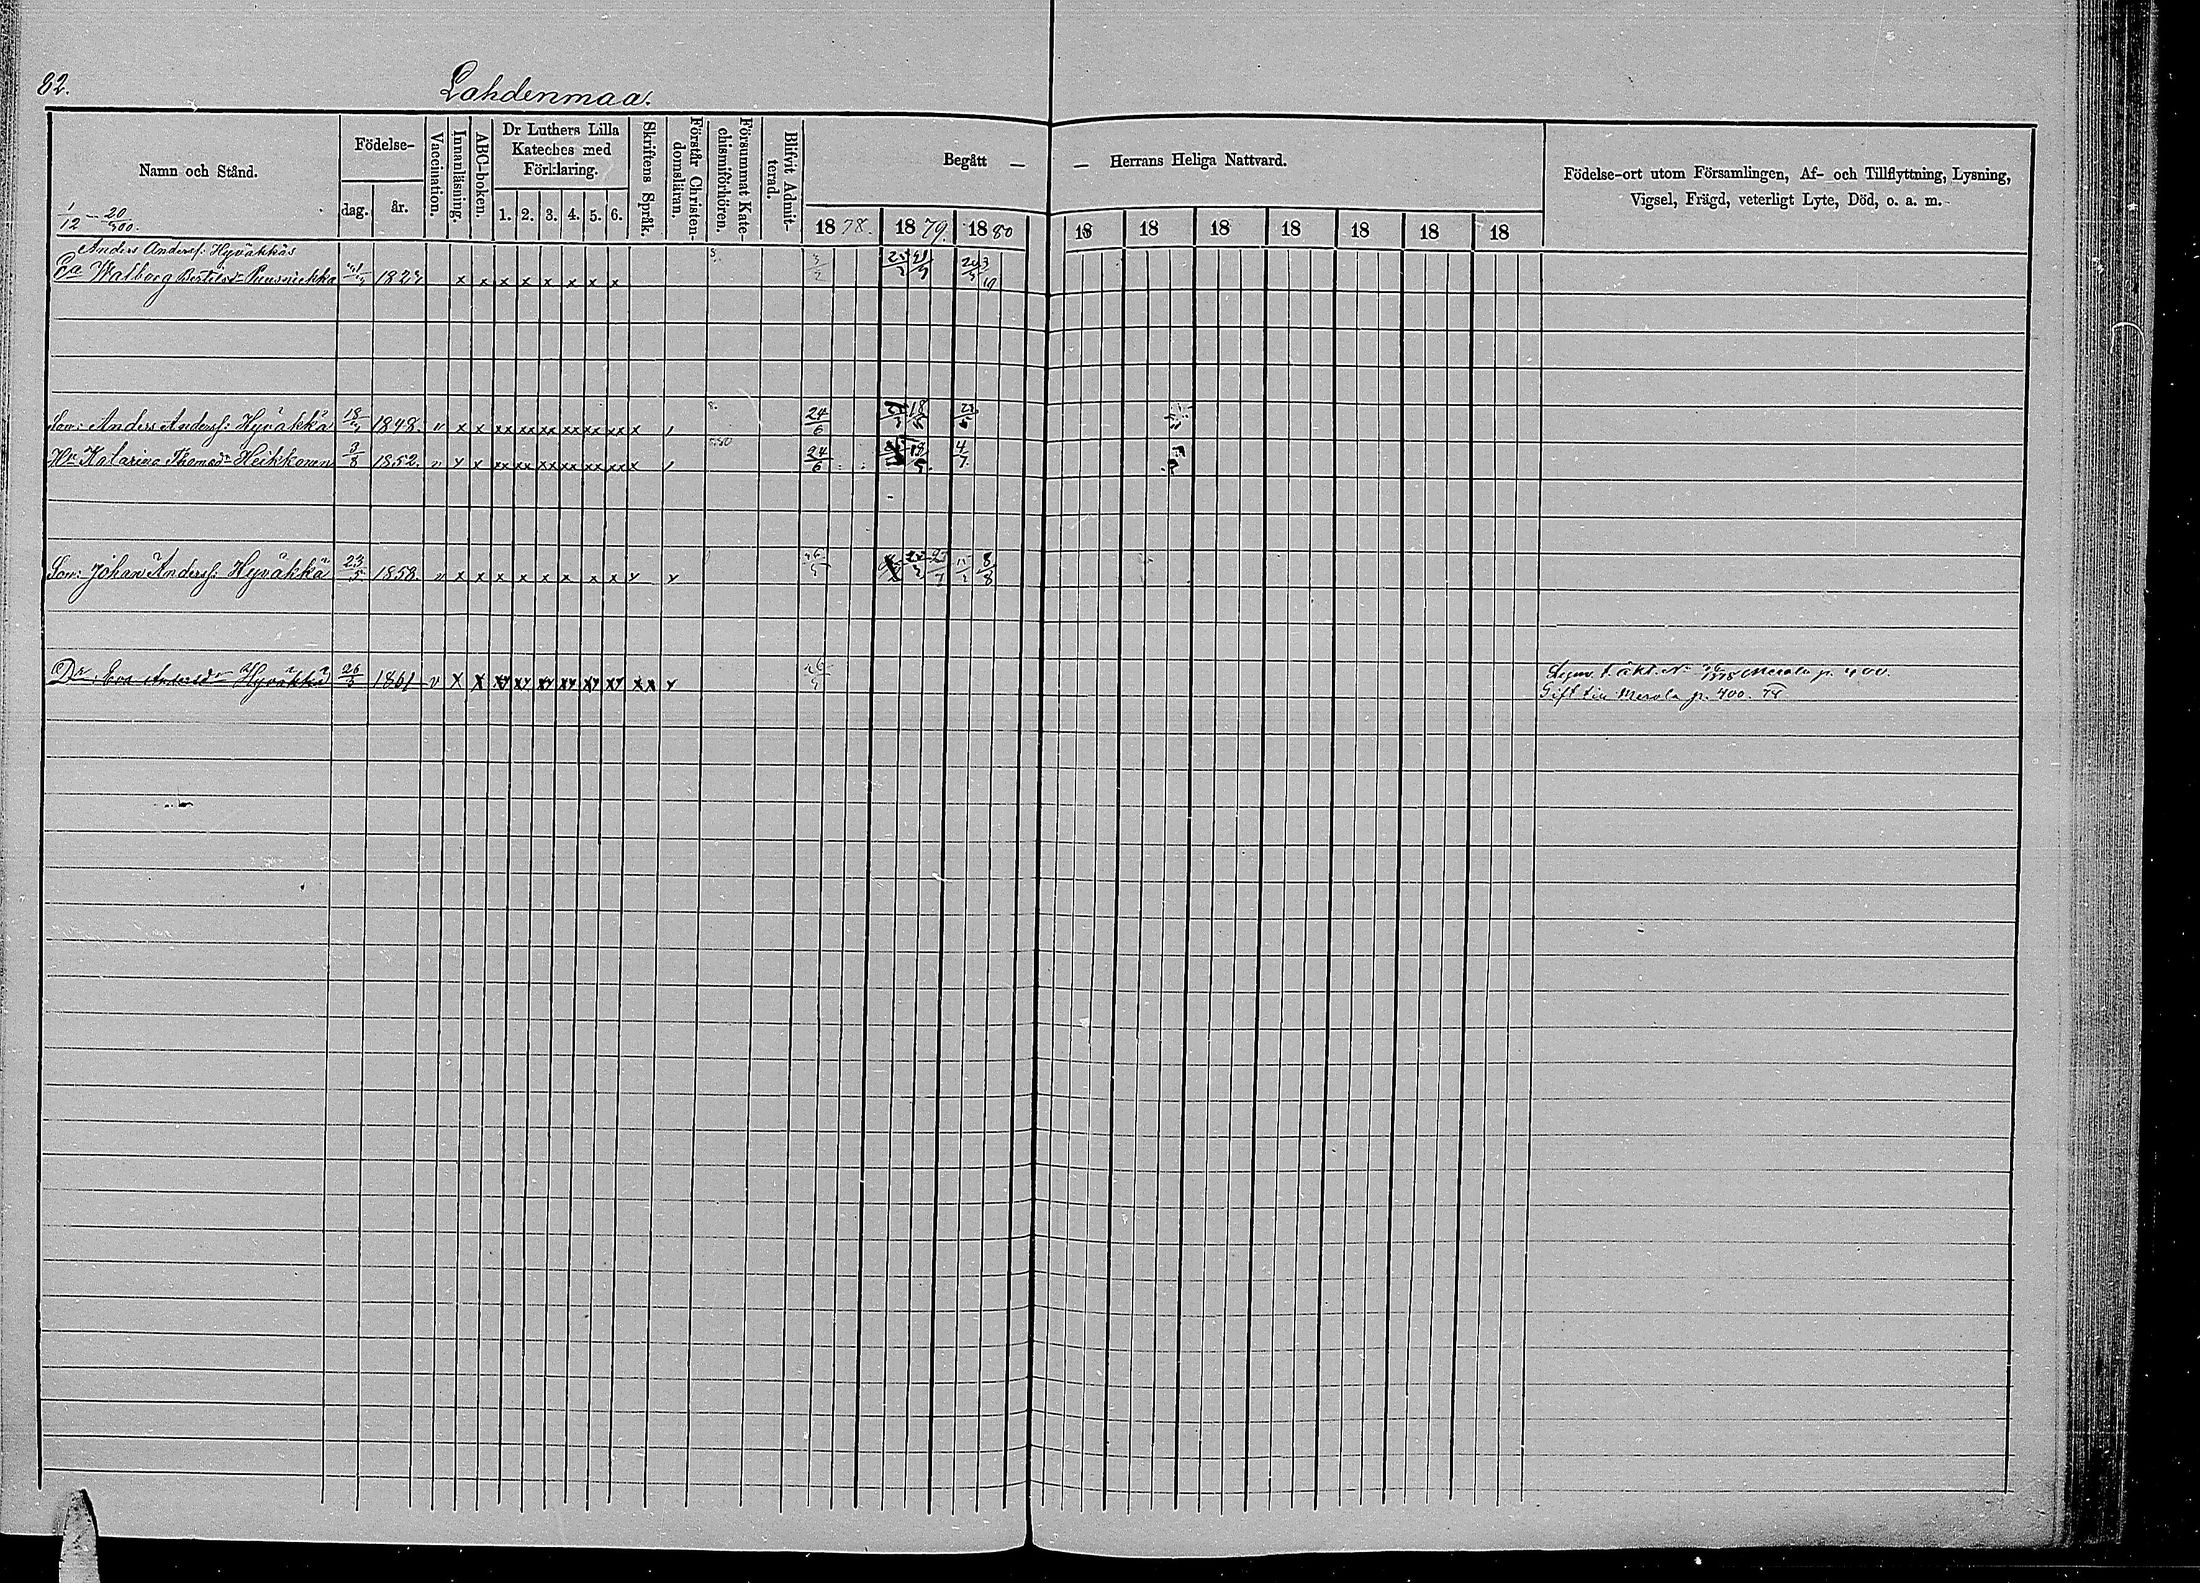 82.
Lahdenmaa.
Namn och Stånd.
1/12 — 20/300.
Födelse-
dag.
år.
Vaccination.
Innanläsning.
ABC-boken.
Dr Luthers Lilla
Kateches med
Förklaring.
1. 2. 3. 4. 5. 6.
Skriftens Språk.
Förstår Christen-
domsläran.
Försummat Kate-
chismiförhören.
Blifvit Admit-
terad.
Begått —
— Herrans Heliga Nattvard.
1878. 1879. 1880 18 18 18 18 18 18 18
Födelse-ort utom Församlingen, Af- och Tillflyttning, Lysning,
Vigsel, Frägd, veterligt Lyte, Död, o. a. m.
Anders Andersf: Hyväkkäs
Ea Walborg Bertilsdr 1823 x x x x x x x x
Son: Anders Andersf: Hyväkkä 18/ 1848. v x x xx xx xx xx xx xx x 24/6 18/5
Hu Katarina Thomasdr Heikkonen 1852. v x x xx xx xx xx xx xx x 24/6 18/5 4/7
Son: Johan Andersf: Hyväkkä 23/5 1858 v x x x x x x x x 8/8
Dr. Eva Andersdr Hyväkkä 26/5 1861 v x x
Merola p. 400.
Gift till Merola p. 400.